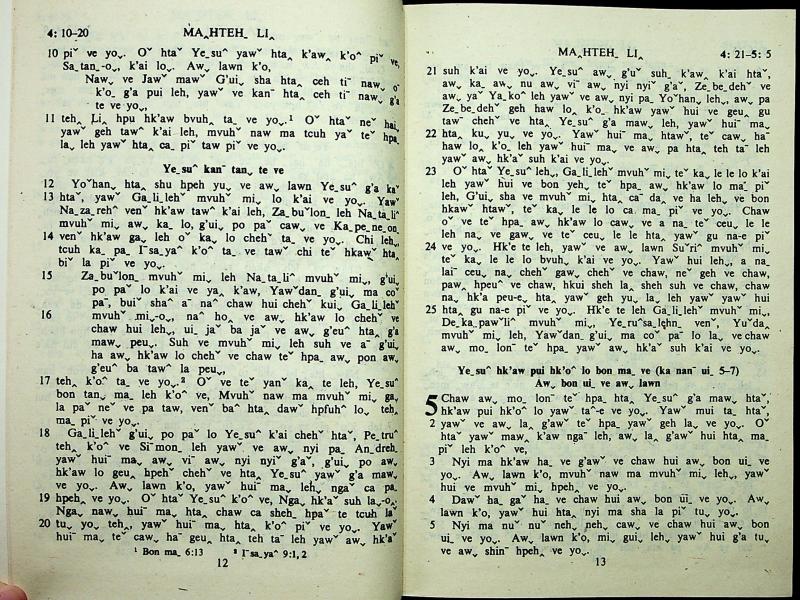 4: 10–20 MA‸HTEH_ LI‸
10 piˇ ve yo⌄. Oˇ htaˇ Ye_suˆ yawˇ hta‸ k'aw‸ k'oˆ piˇ ve,
Sa_tan_-o⌄, k'ai lo⌄. Aw⌄ lawn k'o,
Naw⌄ ve Jawˇ mawˇ G'ui⌄ sha hta‸ ceh tiˉ naw⌄ o‸
k'o_ g'a pui leh, yawˇ ve kanˉ hta‸ ceh tiˉ naw⌄ g'a
te ve yo⌄,
11 teh‸ Li‸ hpu hk'aw bvuh‸ ta_ ve yo⌄.¹ Oˇ htaˇ neˇ hai_
yawˇ geh tawˆ k'ai leh, mvuhˇ naw ma tcuh yaˇ teˇ hpa_
la⌄ leh yawˇ hta‸ ca_ piˇ taw piˇ ve yo⌄.
Ye_suˆ kanˉ tan_ te ve
12 Yoˇhan_ hta‸ shu hpeh yu⌄ ve aw⌄ lawn Ye_suˆ g'a kaˇ
13 htaˇ, yawˇ Ga_li_lehˇ mvuhˇ mi⌄ lo⌄ k'ai ve yo⌄. Yawˇ
Na_za_rehˆ venˇ hk'aw taw‸ k'ai leh, Za_buˇlon_ leh Na_ta_liˆ
mvuhˇ mi⌄ aw⌄ ka_ lo⌄ g'ui⌄ po paˇ caw⌄ ve Ka_pe_ne_on_
14 venˇ hk'aw ga⌄ leh oˇ ka_ lo chehˇ ta_ ve yo⌄. Chi leh⌄,
tcuh ka_ pa_ I_sa_yaˆ k'oˆ ta_ ve tawˇ chi teˇ hkawˇ hta‸
biˇ la piˇ ve yo⌄.
15 Za_buˇlon_ mvuhˇ mi⌄ leh Na_ta_liˆ mvuhˇ mi⌄, g'ui⌄
po paˇ lo k'ai ve ya‸ k'aw, Yawˇdan_ g'ui⌄ ma coˇ
paˉ, buiˇ shaˆ aˉ naˆ chaw hui chehˇ kui⌄ Ga_li_lehˇ
16 mvuhˇ mi⌄-o⌄, naˇ ho‸ ve aw⌄ hk'aw lo chehˇ ve
chaw hui leh⌄, ui_ jaˇ ba jaˇ ve aw⌄ g'euˆ hta‸ g'a
maw‸ peu⌄. Suh ve mvuhˇ mi⌄ leh suh ve aˉ g'ui⌄
ha aw⌄ hk'aw lo chehˇ ve chaw teˇ hpa_ aw⌄ pon aw⌄
g'euˆ ba tawˆ la peu⌄,
17 teh‸ k'oˆ ta_ ve yo⌄.² Oˇ ve teˇ yanˇ ka‸ te leh, Ye_suˆ
bon tan⌄ ma_ leh k'oˆ ve, Mvuhˇ naw ma mvuhˇ mi⌄ ga⌄
la paˇ neˇ ve pa taw, venˇ baˆ hta‸ dawˇ hpfuhˇ lo⌄ teh⌄
ma_ piˇ ve yo⌄.
18 Ga_li_lehˇ g'ui⌄ po paˇ lo Ye_suˆ k'ai chehˇ htaˇ, Pe_truˆ
teh‸ k'oˆ ve Siˆmon_ leh yawˇ ve aw⌄ nyi pa_ An_dreh_
yawˇ huiˉ ma_ aw⌄ viˉ aw⌄ nyi nyiˇ g'aˇ, g'ui⌄ po aw⌄
hk'aw lo geu‸ hpehˇ chehˇ ve hta‸ Ye_suˆ yawˇ g'a maw⌄
ve yo⌄. Aw⌄ lawn k'o, yawˇ huiˉ ma_ leh⌄ ngaˇ ca pa_
19 hpeh⌄ ve yo⌄. Oˇ htaˇ Ye_suˆ k'oˆ ve, Nga_ hk'aˇ suh la⌄-o⌄,
Nga_ naw⌄ huiˉ ma_ hta‸ chaw ca sheh_ hpaˇ te tcuh laˇ
20 tu⌄ yo⌄ teh⌄, yawˇ huiˉ ma_ hta‸ k'oˆ piˇ ve yo⌄. Yawˇ
huiˉ ma_ teˇ caw⌄ haˉ geu‸ hta‸ teh taˉ leh yawˇ aw⌄ hk'aˇ
¹ Bon ma_ 6:13 ² I_sa_yaˆ 9:1, 2
12
MA‸HTEH_ LI‸ 4: 21–5: 5
21 suh k'ai ve yo⌄. Ye_suˆ aw⌄ g'uˇ suh_ k'aw‸ k'ai htaˇ,
aw⌄ ka_ aw⌄ nu aw⌄ viˉ aw⌄ nyi nyiˇ g'aˇ, Ze_be_dehˇ ve
aw⌄ yaˇ Ya_koˆ leh yawˇ ve aw⌄ nyi pa_ Yoˇhan_ leh⌄, aw⌄ pa
Ze_be_dehˇ geh haw lo⌄ k'o_ hk'aw yawˇ hui ve geu‸ gu
tawˇ chehˇ ve hta‸ Ye_suˆ g'a maw⌄ leh, yawˇ huiˉ ma_
22 hta‸ ku⌄ yu⌄ ve yo⌄. Yawˇ huiˉ ma_ htawˇ, teˇ caw⌄ haˉ
haw lo⌄ k'o_ leh yawˇ huiˉ ma_ ve aw⌄ pa hta‸ teh taˉ leh
yawˇ aw⌄ hk'aˇ suh k'ai ve yo⌄.
23 Oˇ htaˇ Ye_suˆ leh⌄, Ga_li_lehˇ mvuhˇ mi⌄ teˇ ka_ le le lo k'ai
leh yawˇ hui ve bon yehˇ teˇ hpa_ aw⌄ hk'aw lo maˉ piˇ
leh, G'ui⌄ sha ve mvuhˇ mi⌄ hta‸ caˇ da‸ ve ha leh⌄ ve bon
hkawˇ htawˇ, teˇ ka_ le le lo ca ma_ piˇ ve yo⌄. Chaw
oˇ ve teˇ hpa_ aw⌄ hk'aw lo caw⌄ ve a na_ teˇ ceu⌄ le le
leh na⌄ ve gaw⌄ ve teˇ ceu⌄ le le hta‸ yawˇ gu na-e piˇ
24 ve yo⌄. Hk'e te leh, yawˇ ve aw⌄ lawn Suˇriˆ mvuhˇ mi⌄
teˇ ka_ le le lo bvuh‸ k'ai ve yo⌄. Yawˇ hui leh⌄, a na_
laiˉ ceu⌄ na⌄ chehˇ gaw⌄ chehˇ ve chaw, neˇ geh ve chaw,
paw‸ hpeuˆ ve chaw, hkui sheh la⌄ sheh suh ve chaw, chaw
na⌄ hk'a peu-e⌄ hta‸ yawˇ geh yu⌄ la⌄ leh yawˇ yawˇ hui
25 hta‸ gu na-e piˇ ve yo⌄. Hk'e te leh Ga_li_lehˇ mvuhˇ mi⌄,
De_ka_pawˇliˆ mvuhˇ mi⌄, Ye_ruˆsa_lehn_ venˇ, Yuˇda_
mvuhˇ mi⌄ leh, Yawˇdan_ g'ui⌄ ma coˇ paˉ lo la⌄ ve chaw
aw⌄ mo_ lonˉ teˇ hpa_ yawˇ aw⌄ hk'aˇ suh k'ai ve yo⌄.
Ye_suˆ hk'aw pui hk'oˆ lo bon ma_ ve (ka nanˉ ui_ 5–7)
Aw⌄ bon ui_ ve aw⌄ lawn
5 Chaw aw⌄ mo_ lonˉ teˇ hpa_ hta‸ Ye_suˆ g'a maw⌄ htaˇ,
hk'aw pui hk'oˆ lo yawˇ taˉ-e ve yo⌄. Yawˇ mui ta_ htaˇ,
2 yawˇ ve aw⌄ la‸ g'awˇ teˇ hpa_ yawˇ geh la⌄ ve yo⌄. Oˇ
htaˇ yawˇ maw‸ k'aw ngaˇ leh, aw⌄ la‸ g'awˇ hui hta‸ ma_
piˇ leh k'oˆ ve,
3 Nyi ma hk'aw ha_ ve g'awˇ ve chaw hui aw⌄ bon ui_ ve
yo⌄. Aw⌄ lawn k'o, mvuhˇ naw ma mvuhˇ mi⌄ leh⌄, yawˇ
hui ve mvuhˇ mi⌄ hpeh⌄ ve yo⌄.
4 Dawˇ ha_ gaˇ ha_ ve chaw hui aw⌄ bon ui_ ve yo⌄. Aw⌄
lawn k'o, yawˇ hui hta‸ nyi ma sha la piˇ tu⌄ yo⌄.
5 Nyi ma nuˇ nuˇ neh⌄ neh⌄ caw⌄ ve chaw hui aw⌄ bon
ui_ ve yo⌄. Aw⌄ lawn k'o, mi⌄ gui⌄ leh⌄ yawˇ hui g'a tu⌄
ve aw⌄ shinˉ hpeh⌄ ve yo⌄.
13